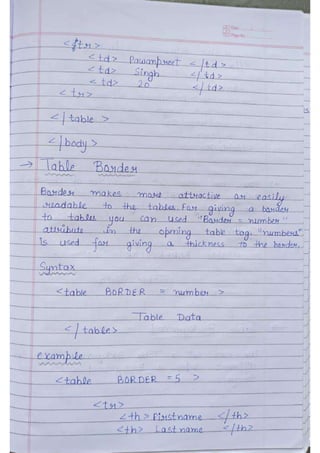 <tr>
<td> Pawanpreet </td>
<td> Singh </td>
<td> 20 </td>
<tr>
</table >
</body>
→ Table Border
Border makes more attractive or easily
readable to the tables. For giving a border
to tables you can used "Border = number"
attribute in the opening table tag. "numbers"
Is used for giving a thickness to the border.
Syntax
<table BORDER = number >
Table Data
</table>
example
<table BORDER =5 >
<tr>
<th> Firstname </th>
<th> Last name </th>